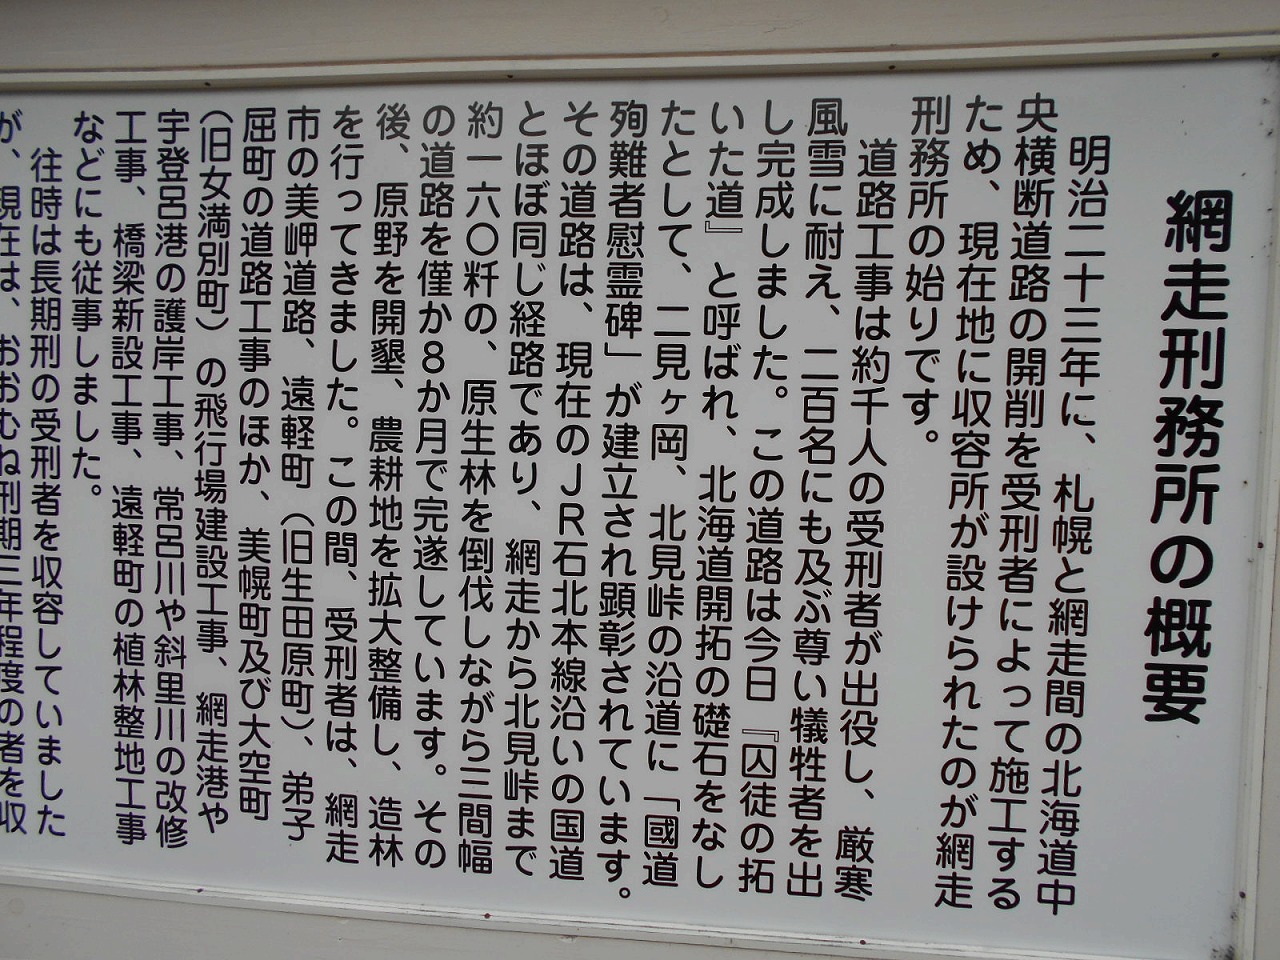 網走刑務所の概要
明治二十三年に、札幌と網走間の北海道中
央横断道路の開削を受刑者によって施工する
ため、現在地に収容所が設けられたのが網走
刑務所の始りです。
道路工事は約千人の受刑者が出役し、厳寒
風雪に耐え、二百名にも及ぶ尊い犠牲者を出
し完成しました。この道路は今日『囚徒の拓
いた道』と呼ばれ、北海道開拓の礎石をなし
たとして、二見ヶ岡、北見峠の沿道に「國道
殉難者慰霊碑」が建立され顕彰されています。
その道路は、現在のJR石北本線沿いの国道
とほぼ同じ経路であり、網走から北見峠まで
約一六〇粁の、原生林を倒伐しながら三間幅
の道路を僅か8か月で完遂しています。その
後、原野を開墾、農耕地を拡大整備し、造林
を行ってきました。この間、受刑者は、網走
市の美岬道路、遠軽町（旧生田原町）、弟子
屈町の道路工事のほか、美幌町及び大空町
（旧女満別町）の飛行場建設工事、網走港や
宇登呂港の護岸工事、常呂川や斜里川の改修
工事、橋梁新設工事、遠軽町の植林整地工事
などにも従事しました。
往時は長期刑の受刑者を収容していました
が、現在は、おおむね刑期三年程度の者を収